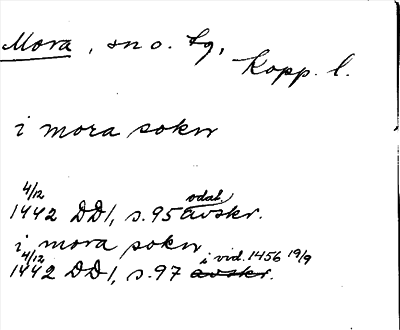 Mora, sn o. tg,
Kopp. l.
i mora sokn
4/12
1442 DD1, s. 95 avskr. odat.
i mora sokn
4/12
1442 DD1, s. 97 avskr. i vid. 1456 19/9